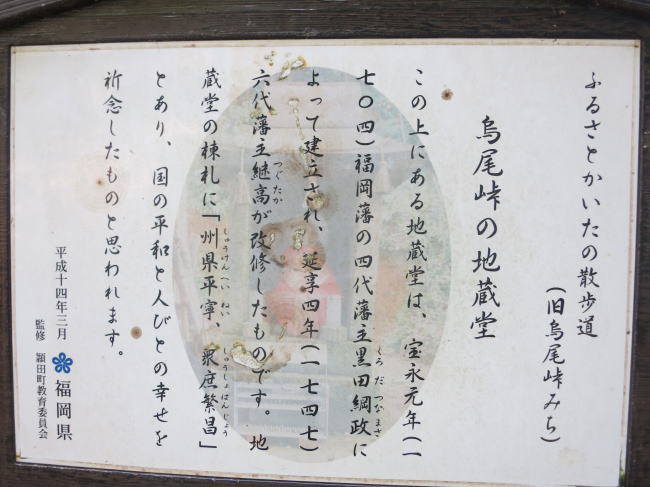 ふるさとかいたの散歩道
(旧烏尾峠みち)
烏尾峠の地蔵堂
この上にある地蔵堂は、宝永元年(一
七〇四)福岡藩の四代藩主黒田綱政に
くろだつなまさ
よって建立され、延享四年(一七四七)
六代藩主継高が改修したものです。地
つぐたか
蔵堂の棟札に「州県平寧、衆庶繁昌」
しゅうけんへいねい
しゅうしょはんじょう
とあり、国の平和と人びとの幸せを
祈念したものと思われます。
平成十四年三月
福岡県
監修 頴田町教育委員会